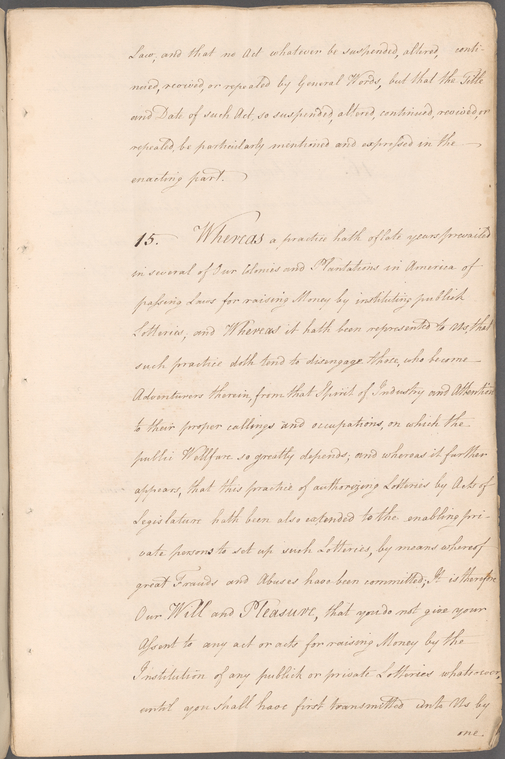 Law, and that no Act whatever be suspended, altered, conti-
nued, revived, or repealed by General Words, but that the Title
and Date of such Act, so suspended, altered, continued, revived, or
repealed, be particularly mentioned and expressed in the
enacting part.
15. Whereas a practice hath of late years prevailed
in several of Our Colonies and Plantations in America of
passing Laws for raising Money by instituting publick
Lotteries, and Whereas it hath been represented to Us, that
such practice doth tend to disengage those, who become
Adventurers therein, from that Spirit of Industry and Attention
to their proper callings and occupations, on which the
public Wellfare so greatly depends; and whereas it further
appears, that this practice of authorizing Lotteries by Acts of
Legislature hath been also extended to the enabling pri-
vate persons to set up such Lotteries, by means whereof
great Frauds and Abuses have been committed; It is therefore
Our Will and Pleasure, that you do not give your
Assent to any act or acts for raising Money by the
Institution of any publick or private Lotteries whatsoever,
until you shall have first transmitted unto Us by
one